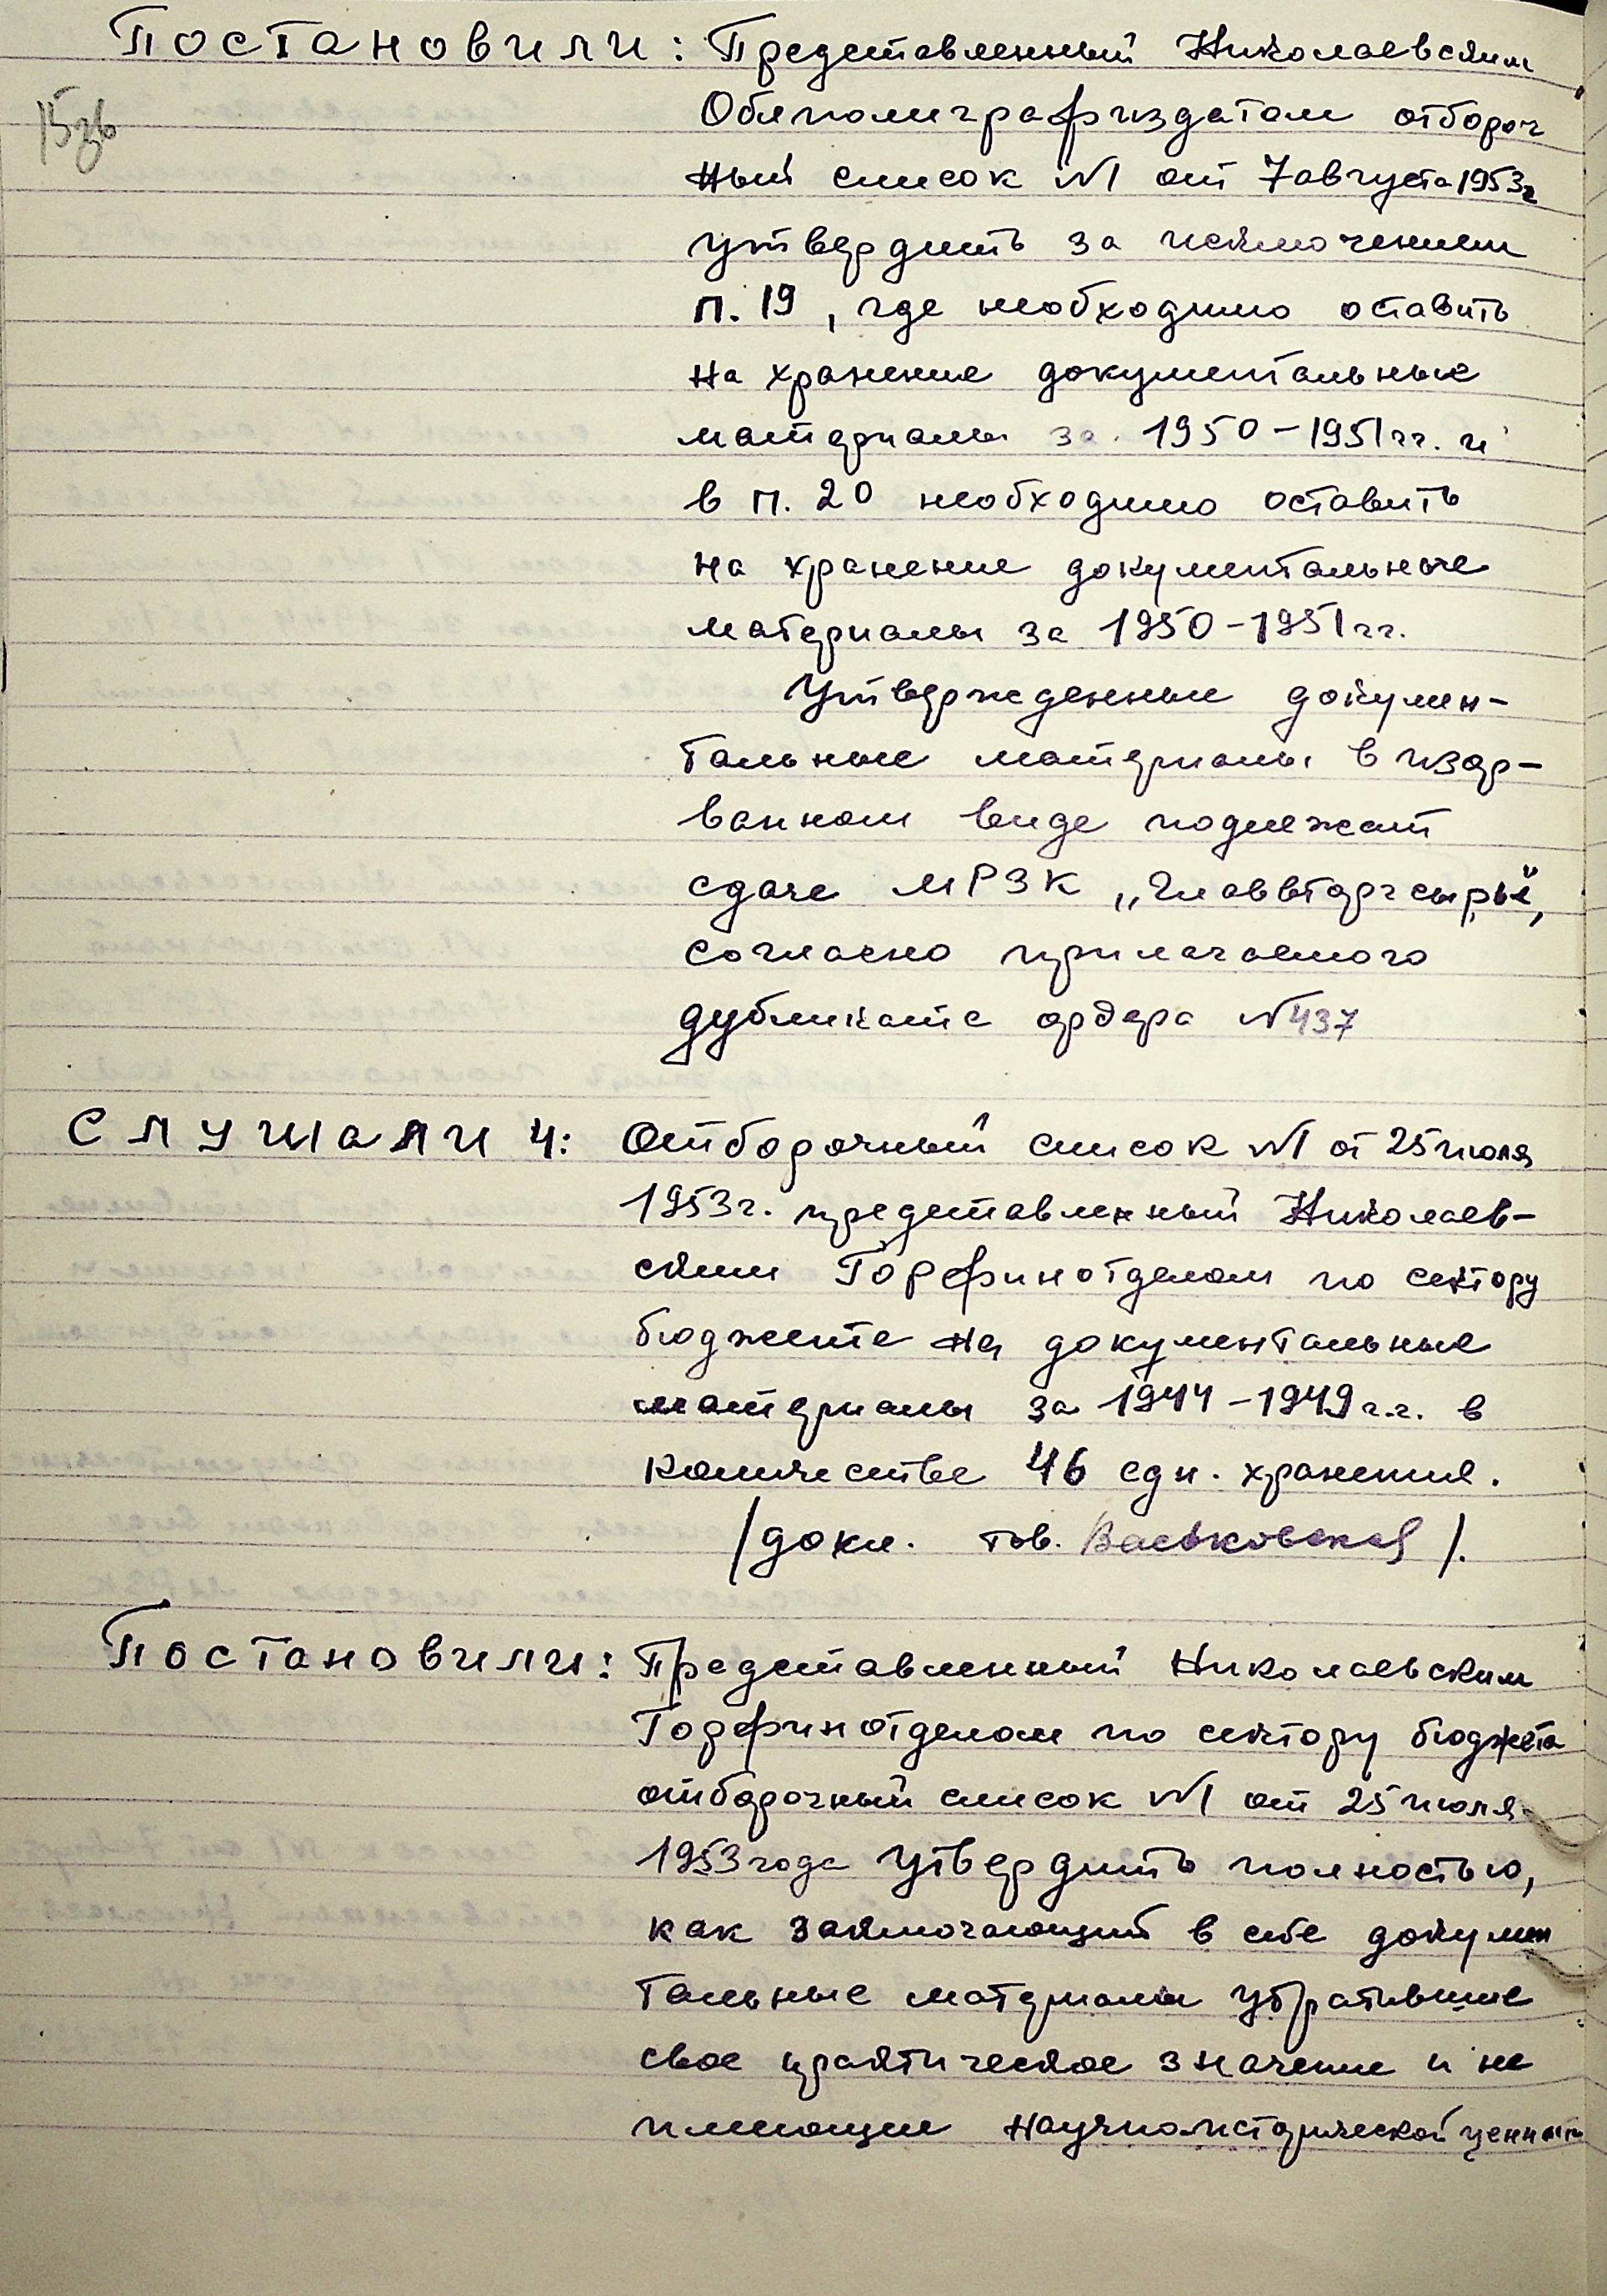 Постановили: Представленный Николаевским
15зв
Облполиграфиздатом отбороч
ный список №1 от 7 августа 1953г
утвердить за исключением
п. 19, где необходимо оставить
на хранение документальные
материалы за 1950-1951гг. и
в п. 20 необходимо оставить
на хранение документальные
материалы за 1950-1951гг.
Утвержденные докумен-
тальные материалы в изор-
ванном виде подлежат
сдаче МРЗК „Главвторчсырьё",
согласно прилагаемого
дубликата ордера №437
Слушали 4: Отборочный список №1 от 25 июля
1953г. представленный Николаев-
ским Горфинотделом по сектору
бюджета на документальные
материалы за 1944-1949г.г. в
количестве 46 един. хранения.
/докл. тов. Васьковская/.
Постановили: Представленный Николаевским
Горфинотделом по сектору бюджета
отборочный список №1 от 25 июля
1953 года утвердить полностью,
как заключающий в себе докумен
тальные материалы утратившие
свое практическое значение и не
имеющие научно-исторической ценности